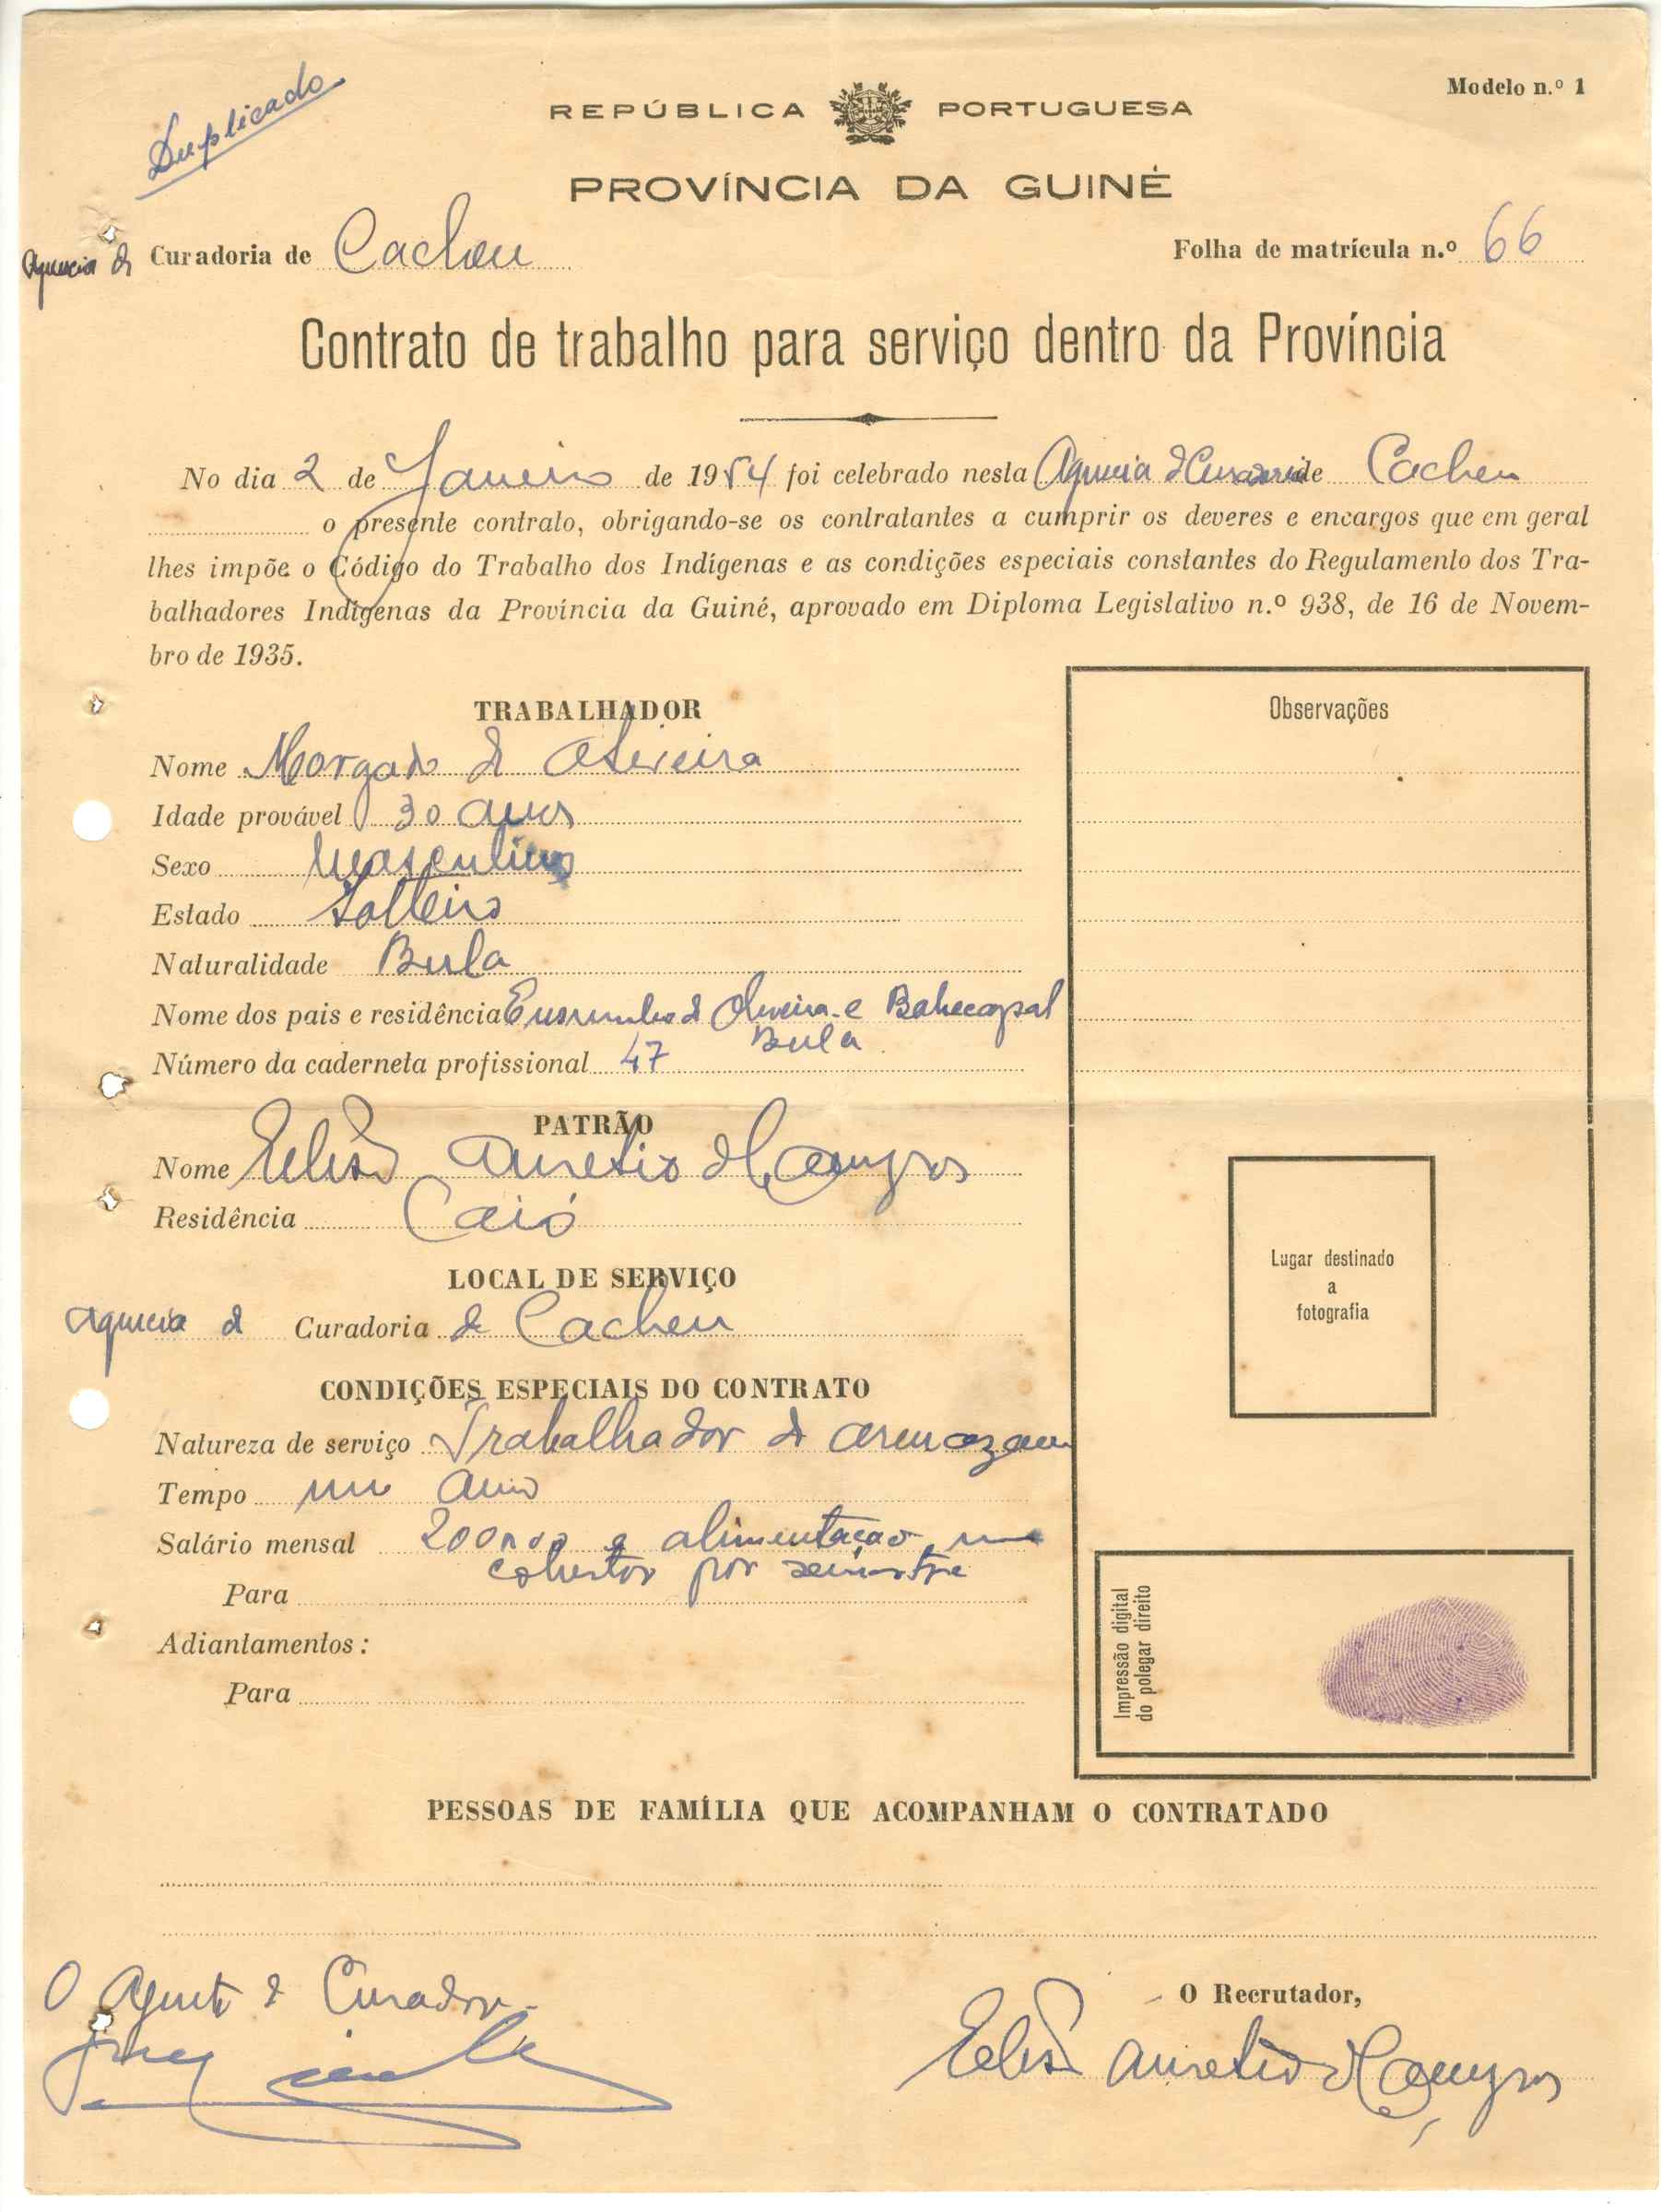 Duplicado
Modelo n.º 1
REPÚBLICA PORTUGUESA
PROVÍNCIA DA GUINÉ
Agencia de Curadoria de Cacheu
Folha de matrícula n.º 66
Contrato de trabalho para serviço dentro da Província
No dia 2 de Janeiro de 1954 foi celebrado nesta Agencia de Curadoria de Cacheu
o presente contrato, obrigando-se os contratantes a cumprir os deveres e encargos que em geral
lhes impõe o Código do Trabalho dos Indígenas e as condições especiais constantes do Regulamento dos Tra-
balhadores Indígenas da Província da Guiné, aprovado em Diploma Legislativo n.º 938, de 16 de Novem-
bro de 1935.
TRABALHADOR
Nome Morgado de Oliveira
Idade provável 30 anos
Sexo Masculino
Estado Solteiro
Naturalidade Bula
Nome dos pais e residência de Oliveira e
Bula
Número da caderneta profissional 47
Observações
PATRÃO
Nome Aurelio de Campos
Residência Caió
LOCAL DE SERVIÇO
Agencia de Curadoria de Cacheu
CONDIÇÕES ESPECIAIS DO CONTRATO
Natureza de serviço Trabalhador de armazem
Tempo um ano
Salário mensal 200$00 e alimentação, um
cobertor por semestre
Para
Adiantamentos:
Para
Lugar destinado
a
fotografia
Impressão digital
do polegar direito
PESSOAS DE FAMÍLIA QUE ACOMPANHAM O CONTRATADO
O Agente do Curador
O Recrutador,
Aurelio de Campos